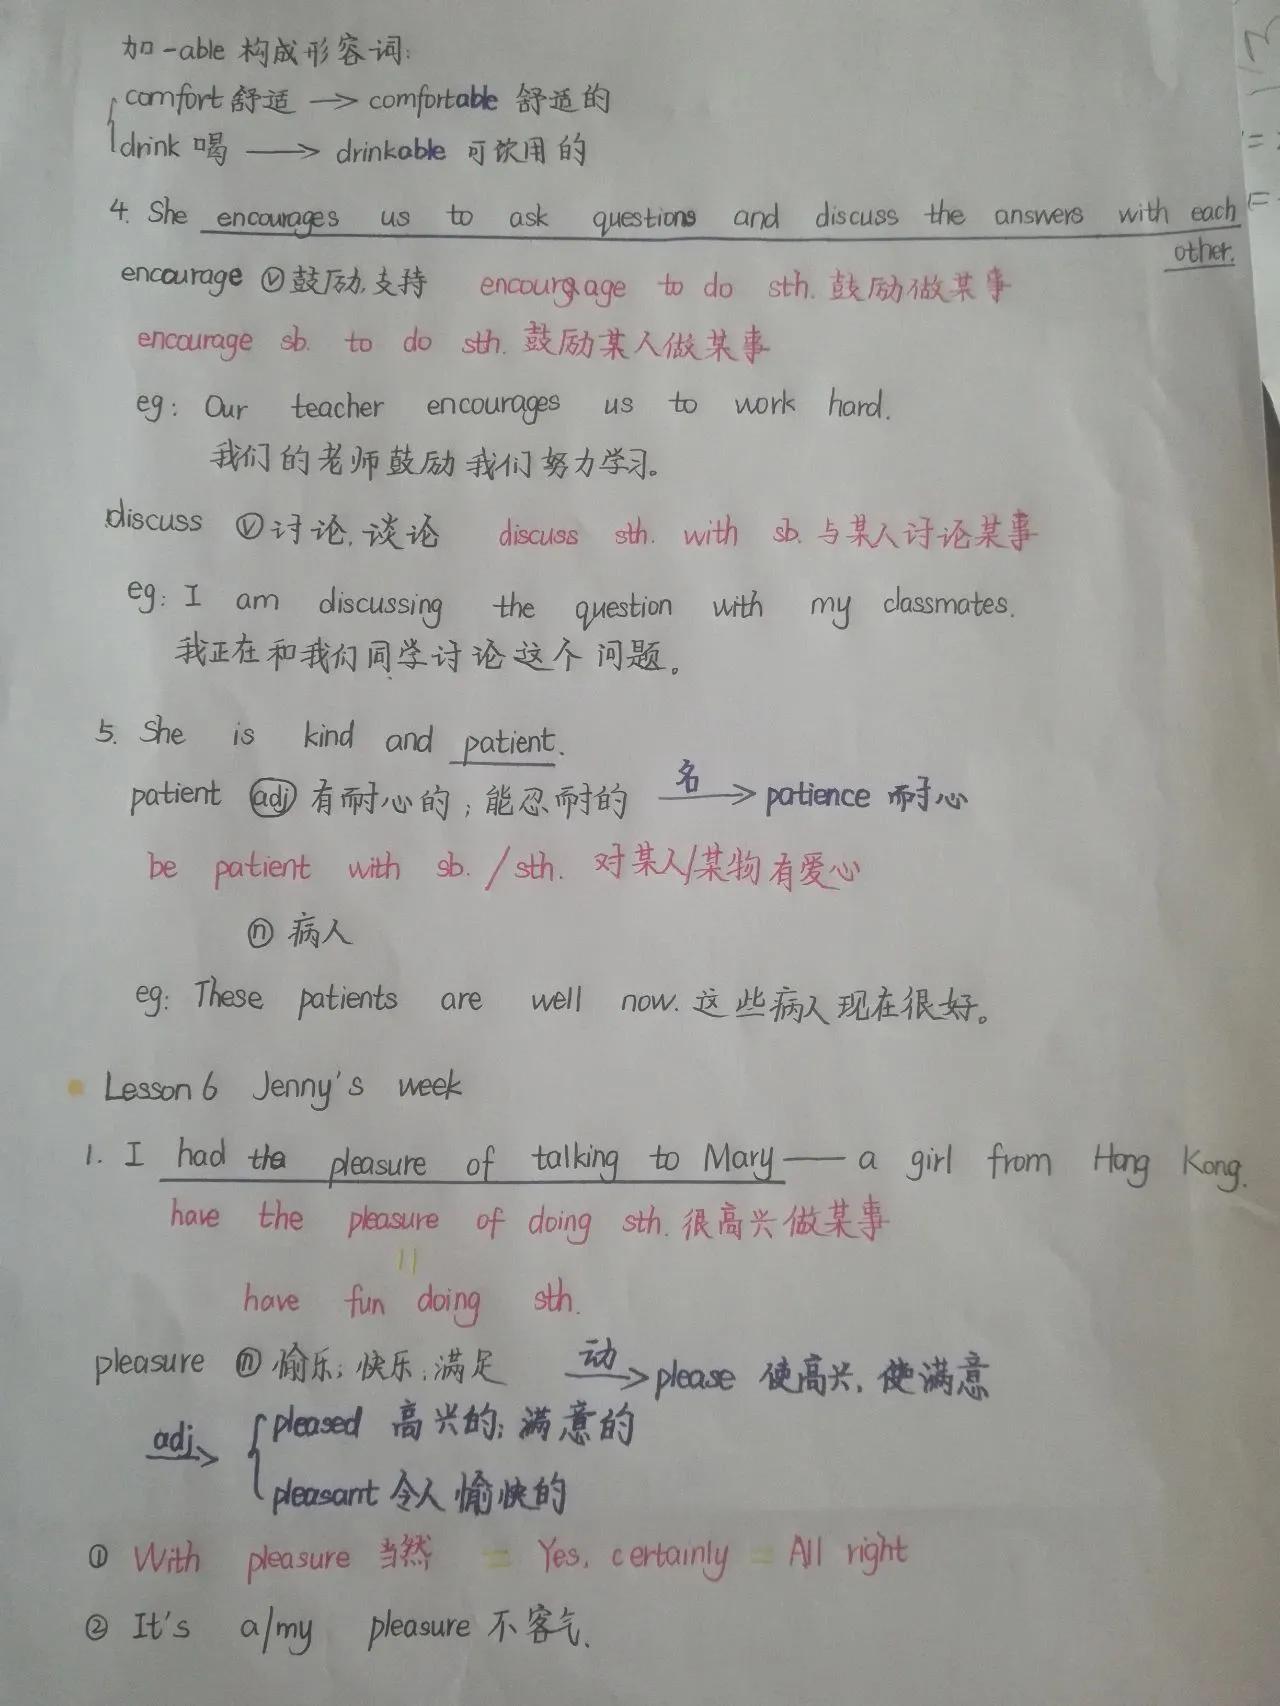 加-able 构成形容词:
comfort 舒适 → comfortable 舒适的
drink 喝 → drinkable 可饮用的
4. She encourages us to ask questions and discuss the answers with each
other.
encourage ⓥ 鼓励,支持 encourage to do sth. 鼓励做某事
encourage sb. to do sth. 鼓励某人做某事
eg: Our teacher encourages us to work hard.
我们的老师鼓励我们努力学习。
discuss ⓥ 讨论,谈论 discuss sth. with sb. 与某人讨论某事
eg: I am discussing the question with my classmates.
我正在和我们同学讨论这个问题。
5. She is kind and patient.
patient adj 有耐心的；能忍耐的 名→ patience 耐心
be patient with sb. / sth. 对某人/某物有爱心
ⓝ 病人
eg: These patients are well now. 这些病人现在很好。
Lesson 6 Jenny's week
1. I had the pleasure of talking to Mary — a girl from Hong Kong.
have the pleasure of doing sth. 很高兴做某事
have fun doing sth.
pleasure ⓝ 愉乐；快乐；满足 动→ please 使高兴, 使满意
adj→ pleased 高兴的；满意的
pleasant 令人愉快的
① With pleasure 当然 = Yes, certainly = All right
② It's a/my pleasure 不客气.